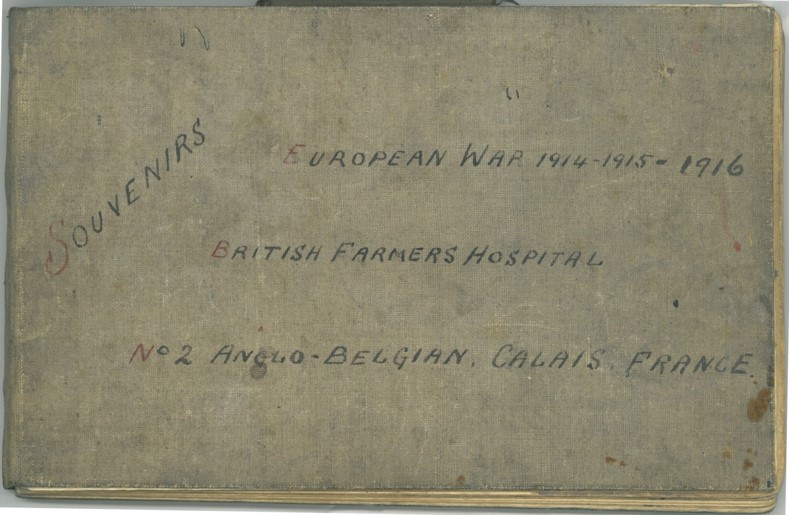 SOUVENIRS
EUROPEAN WAR 1914-1915-1916
BRITISH FARMERS HOSPITAL
No 2 ANGLO-BELGIAN. CALAIS. FRANCE.